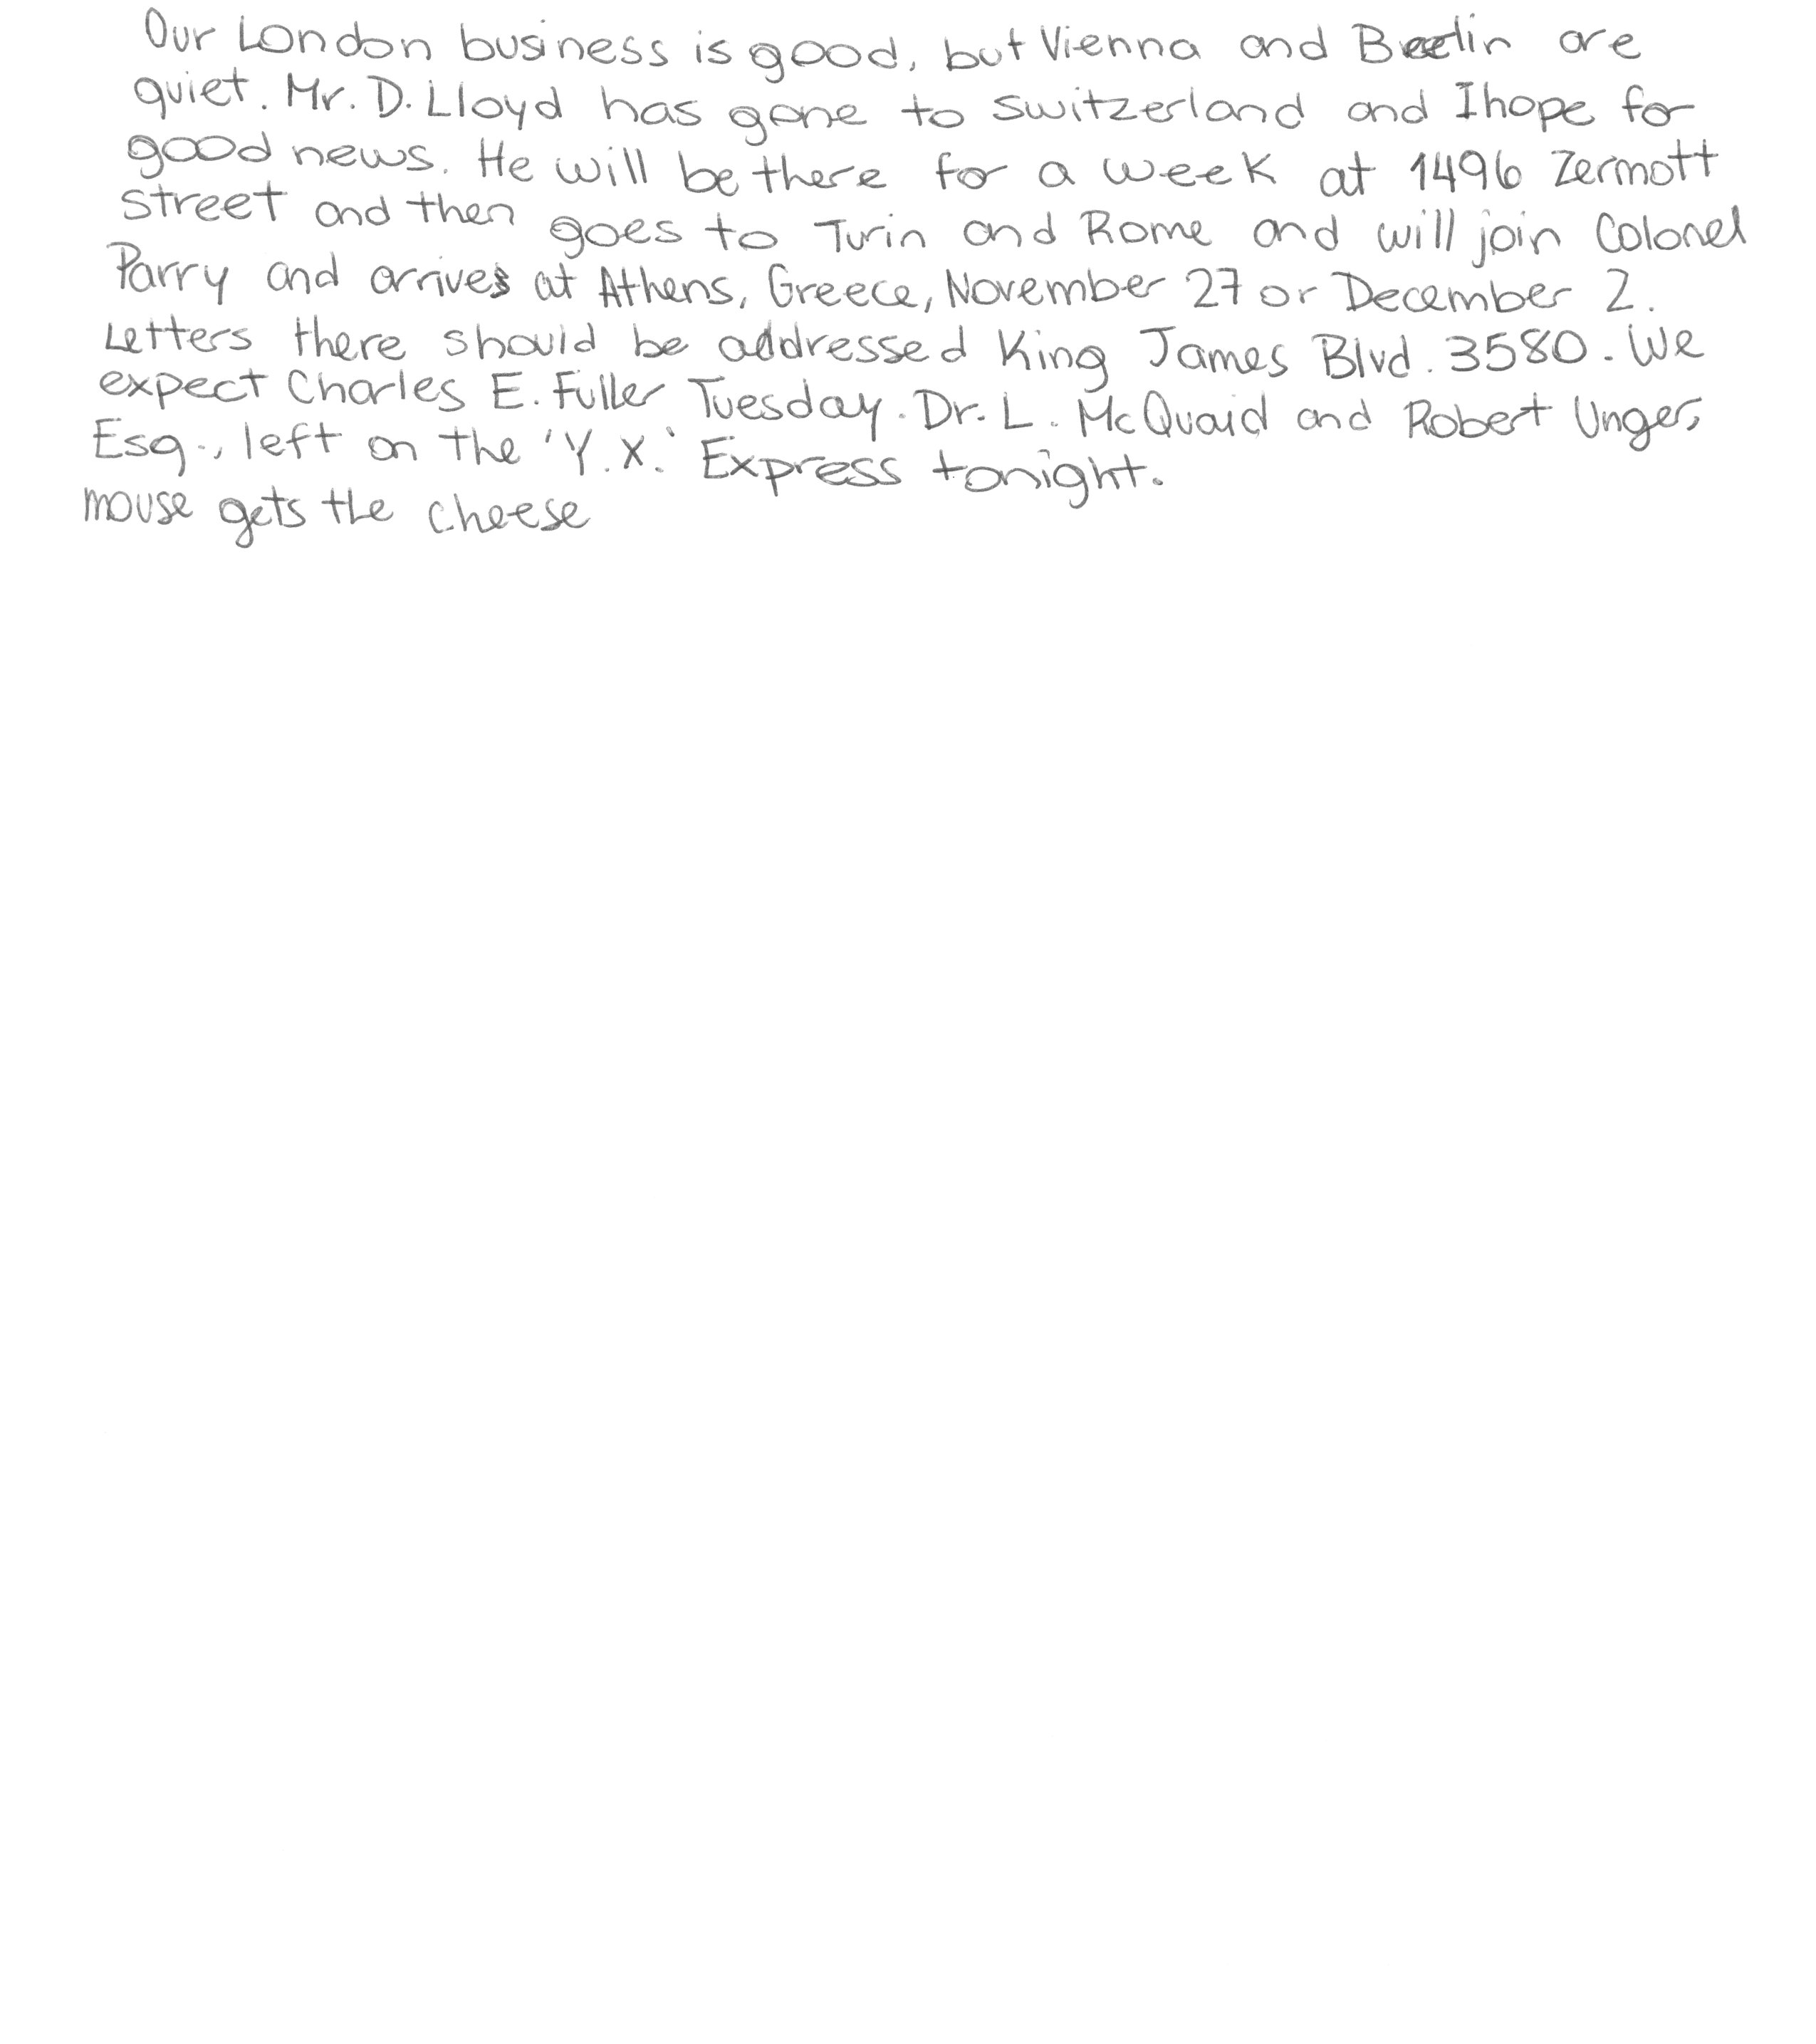 Our London business is good, but Vienna and Berlin are
quiet. Mr. D. Lloyd has gone to Switzerland and I hope for
good news. He will be there for a week at 1496 Zermott
Street and then goes to Turin and Rome and will join Colonel
Parry and arrives at Athens, Greece, November 27 or December 2.
Letters there should be addressed King James Blvd. 3580. We
expect Charles E. Fuller Tuesday. Dr. L. McQuaid and Robert Unger,
Esq., left on the 'Y.X.' Express tonight.
mouse gets the cheese